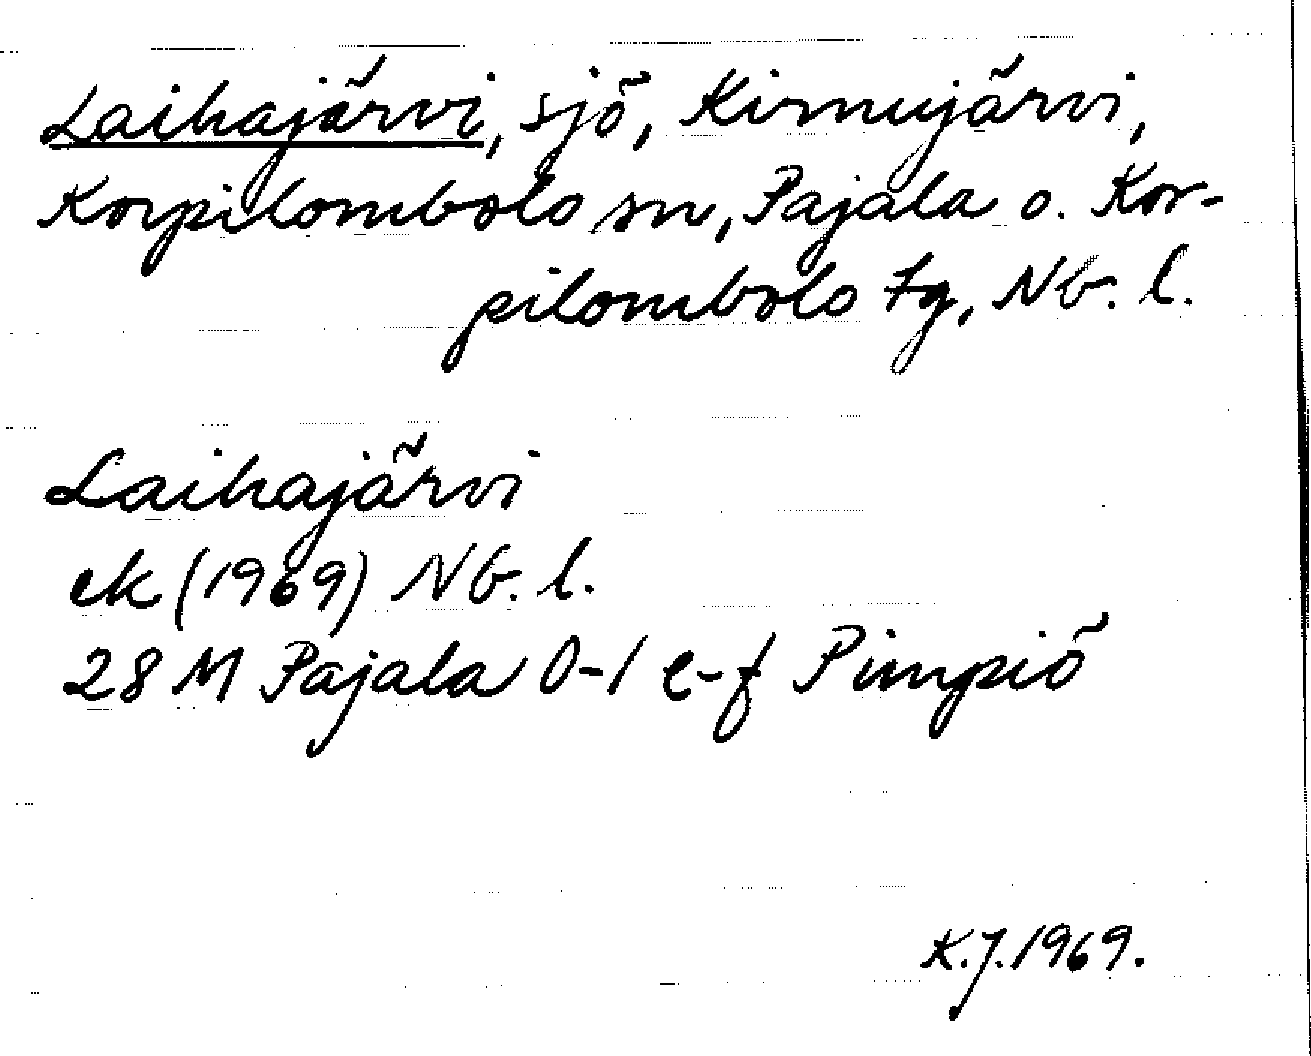 Laihajärvi, sjö, Kirnujärvi,
Korpilombolo sn, Pajala o. Kor-
pilombolo tg, Nb. l.
Laihajärvi
ek (1969) Nb. l.
28 M Pajala 0-1 e-f Pimpiö
K.J. 1969.